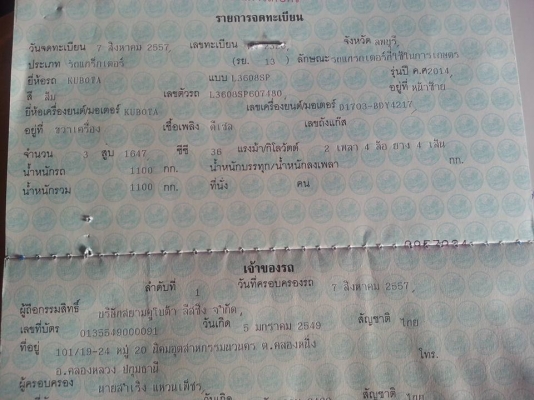 รายการจดทะเบียน
วันจดทะเบียน 7 สิงหาคม 2557 เลขทะเบียน จังหวัด ลพบุรี
ประเภท รถแทรกเตอร์ (รย. 13 ) ลักษณะ รถแทรกเตอร์ที่ใช้ในการเกษตร
ยี่ห้อรถ KUBOTA แบบ L3608SP รุ่นปี ค.ศ 2014
สี ส้ม เลขตัวรถ L3608SP607480 อยู่ที่ หน้าซ้าย
ยี่ห้อเครื่องยนต์/มอเตอร์ KUBOTA เลขเครื่องยนต์/มอเตอร์ D1703-BDY4217
อยู่ที่ ขวาเครื่อง เชื้อเพลิง ดีเซล เลขถังแก๊ส
จำนวน 3 สูบ 1647 ซีซี 36 แรงม้า/กิโลวัตต์ 2 เพลา 4 ล้อ ยาง 4 เส้น
น้ำหนักรถ 1100 กก. น้ำหนักบรรทุก/น้ำหนักลงเพลา กก.
น้ำหนักรวม 1100 กก. ที่นั่ง คน
เจ้าของรถ
ลำดับที่ 1 วันที่ครอบครองรถ 7 สิงหาคม 2557
ผู้ถือกรรมสิทธิ์ บริษัทสยามคูโบต้า ลีสซิ่ง จำกัด
เลขที่บัตร 0135549000091 วันเกิด 5 มกราคม 2549 สัญชาติ ไทย
ที่อยู่ 101/19-24 หมู่ 20 นิคมอุตสาหกรรมนวนคร ต.คลองหนึ่ง
อ.คลองหลวง ปทุมธานี โทร.
ผู้ครอบครอง นายสำเริง
วันเกิด สัญชาติ ไทย